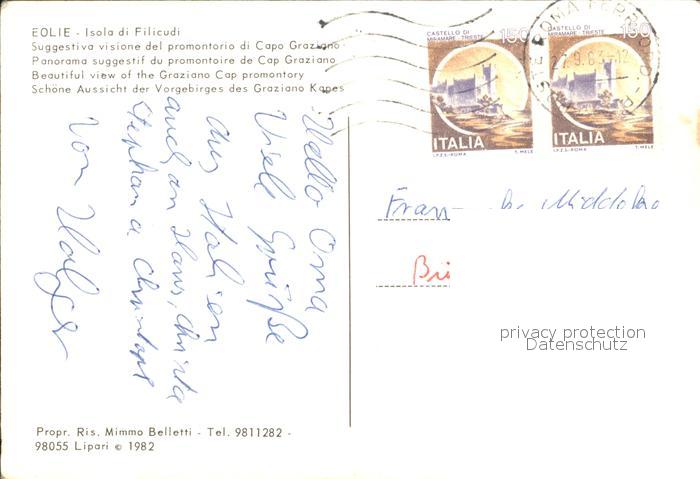 EOLIE - Isola di Filicudi
Suggestiva visione del promontorio di Capo Graziano
Panorama suggestif du promontoire de Cap Graziano
Beautiful view of the Graziano Cap promontory
Schöne Aussicht der Vorgebirges des Graziano Kapes
CASTELLO DI
MIRAMARE - TRIESTE
150
ITALIA
I.P.Z.S.-ROMA
T. MELE
CASTELLO DI
MIRAMARE - TRIESTE
150
ITALIA
I.P.Z.S.-ROMA
T. MELE
ROMA FERROV
.9.83-12
Hallo Oma
Viele Grüße
Aus Italien
auch an Hans, Christa
Stephan u Christoph
von Holger
Frau
Bri
privacy protection
Datenschutz
Propr. Ris. Mimmo Belletti - Tel. 9811282 -
98055 Lipari © 1982